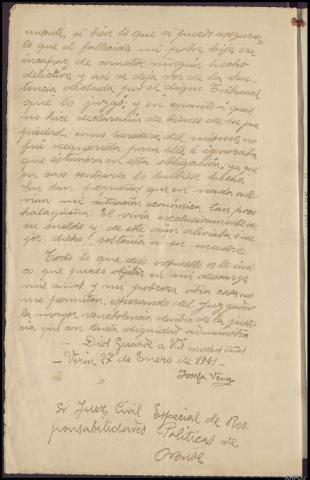 miento, si bien lo que si puedo asegurar,
lo que el fallecido mi pobre hijo era
incapaz de cometer ningún hecho
delictivo y así se deja ver de la sen-
tencia dictada por el digno Tribunal
que lo juzgó; y en cuanto á que
no hice declaración de bienes de ser pro
piedad, como heredera del mismo, no
fuí requerida para ello é ignoraba
que estuviera en esta obligación, ya que
en caso contrario lo hubiese hecho.
Son tan pequeños que en nada alte
ran mi situación económica tan poco
halagüeña. El vivía exclusivamente de
su sueldo y de este aun aliviaba ó me
jor dicho sostenía a su madre.
Todo lo que dejo expuesto es lo úni-
co que puedo objetar en mi descargo
mis años y mi pobreza otra cosa no
me permiten, esperando del Juzgador
la mayor benevolencia dentro de la justi
cia que con tanta dignidad administra
— Dios Guarde a Vd muchos años
— Verin 27 de Enero de 1941 —
Josefa
Sr Juez Civil Especial de Res
ponsabilidades Políticas de
Orense